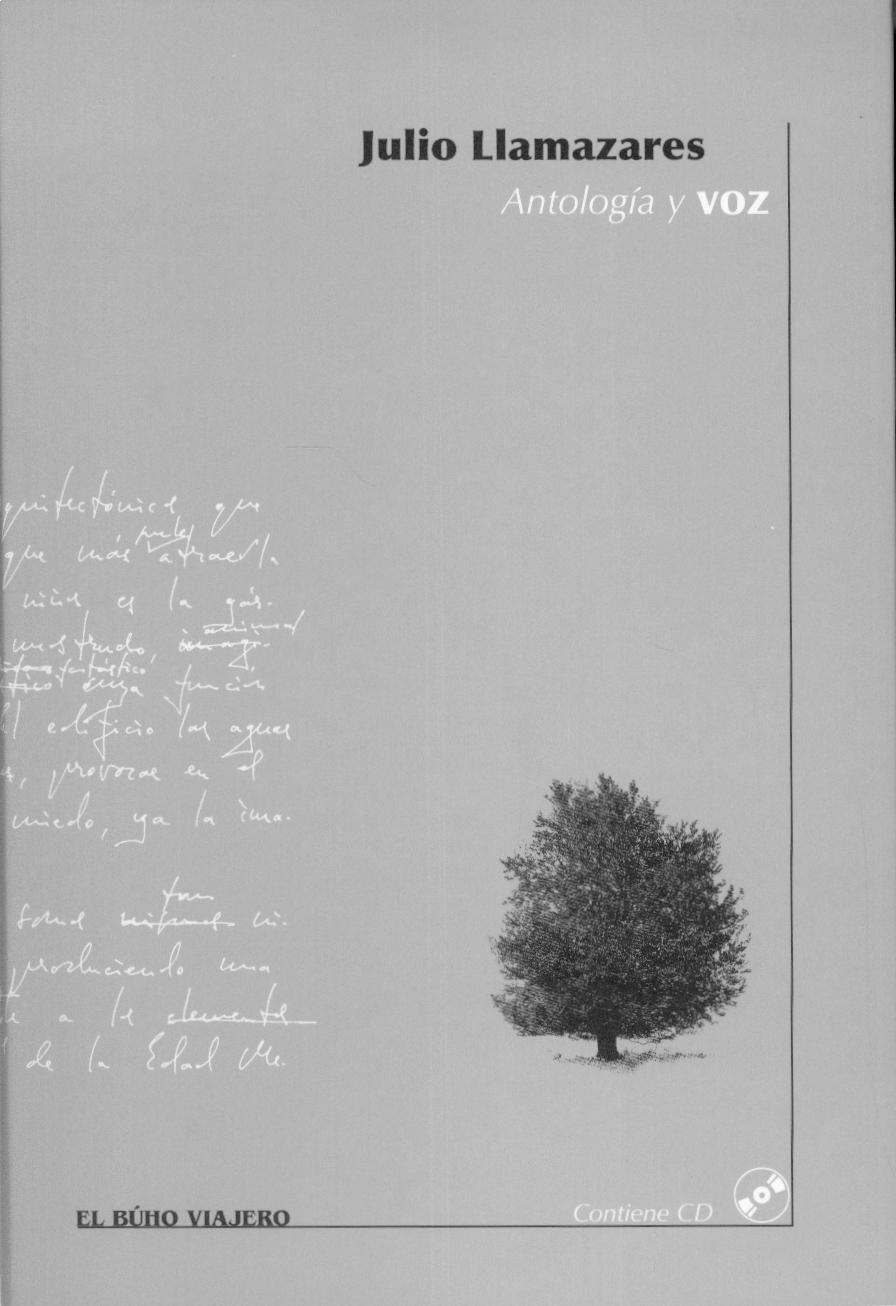 Julio Llamazares
Antología y voz
quitectónica que
que más atrae la
niños es la gár-
animal
fantástico,
cuya función
el edificio las aguas
provocar en el
miedo, ya la ima-
tan
produciendo una
a la
de la Edad Me-
EL BÚHO VIAJERO
Contiene CD